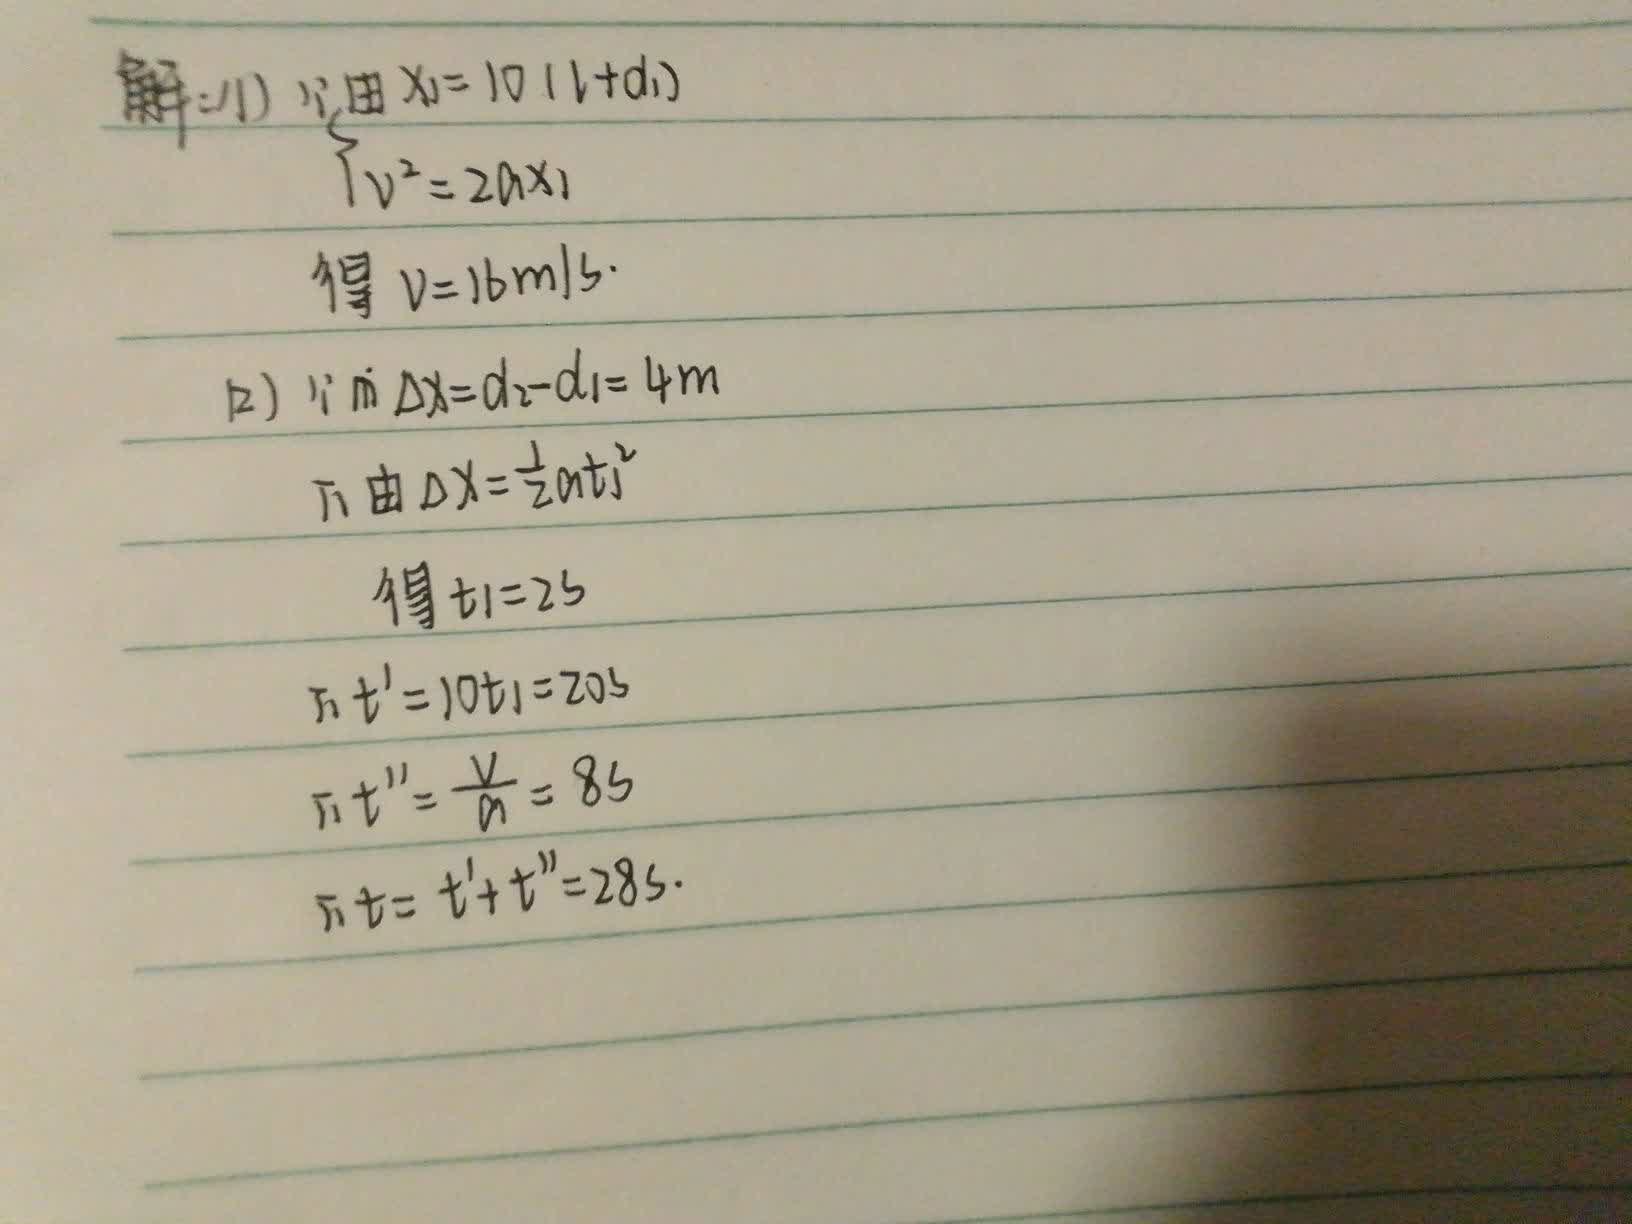 解:(1) ∵由 x₁=10(l+d₁)
{v²=2ax₁
得 v=16m/s.
(2) ∵而 Δx=d₂-d₁=4m
∴由 Δx=½at₁²
得 t₁=2s
∴ t'=10t₁=20s
∴ t''=v/a=8s
∴ t=t'+t''=28s.